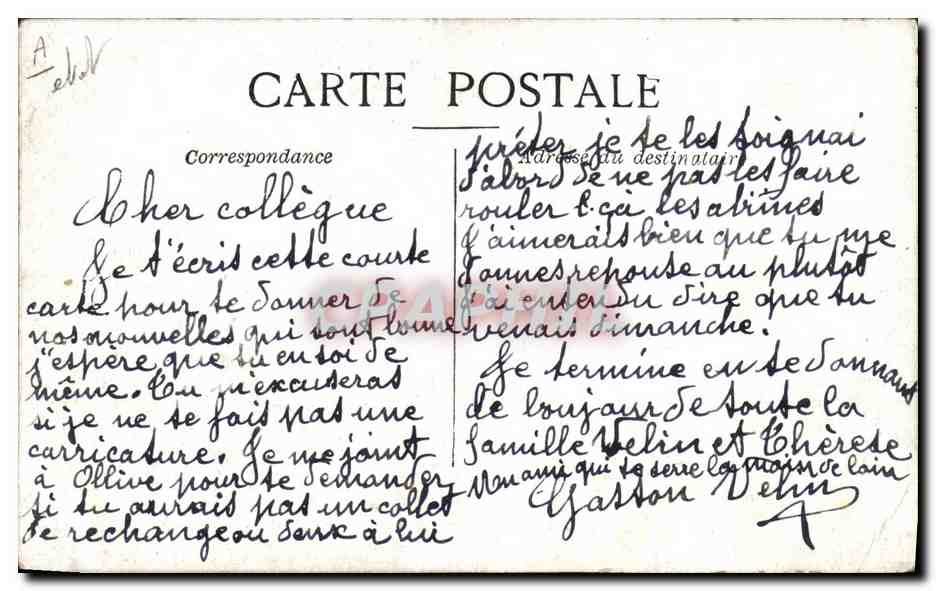 A
CARTE POSTALE
Correspondance
Adresse du destinataire
Cher collègue
Je t'écris cette courte
carte pour te donner de
nos nouvelles qui sont bonne
j'espère que tu en soi de
même. Tu m'excuseras
si je ne te fais pas une
carricature. Je me joint
à Ollive pour te demander
si tu aurais pas un collet
de rechange ou deux à lui
prêter je te les soignai
d'abord de ne pas les faire
rouler ça les abîmes
J'aimerais bien que tu me
donnes reponse au plutôt
j'ai entendu dire que tu
venais dimanche.
Je termine en te donnant
de bonjour de toute la
famille Velin et Thèrèse
Un ami qui te serre la main de loin
Gaston Velin